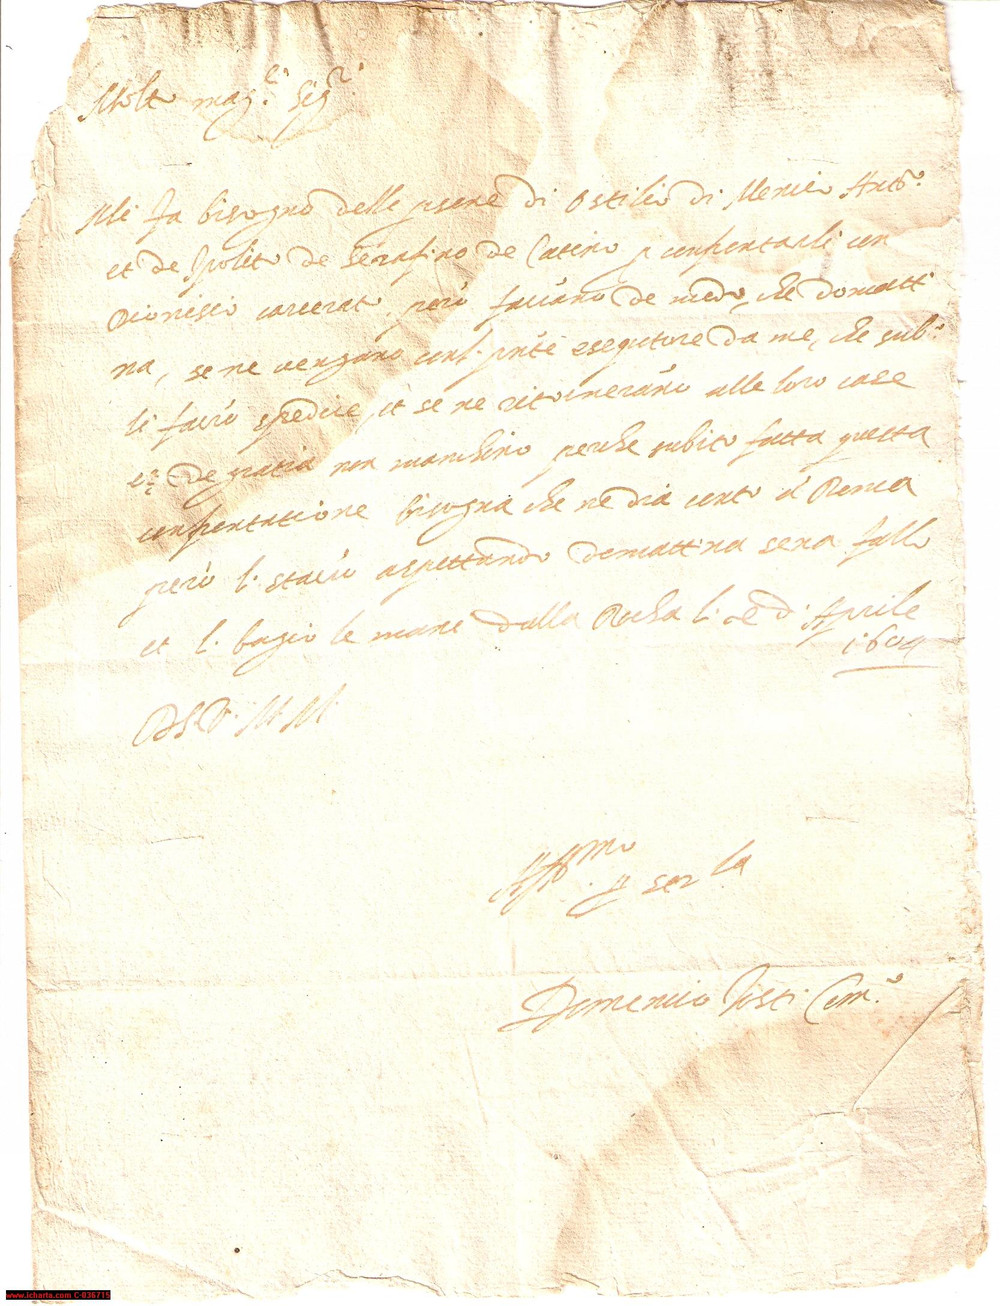 Molto mag.ci Sig.ri
Mi fa bisogno delle psone di Ostilio di Menico Anto.o
et de Ipolito de Serafino de Catino p confrontarli con
Dionisio carcerato, però faciano de modo che domatti
na, se ne vengano con l. pnte esequtore da me, che sub.o
li farò spedire, et se ne ritorneranno alle loro case
et de gratia non manchino perche subito fatta questa
confrontatione bisogna che ne dia conto à Roma
però l. starò aspettando domattina sena fallo
et l. bagio le mane dalla Rocha li d'Aprile
1604
D S V. M M.
Aff.mo p ser la
Domenico Tosti Com.o
www.icharta.com C-036715